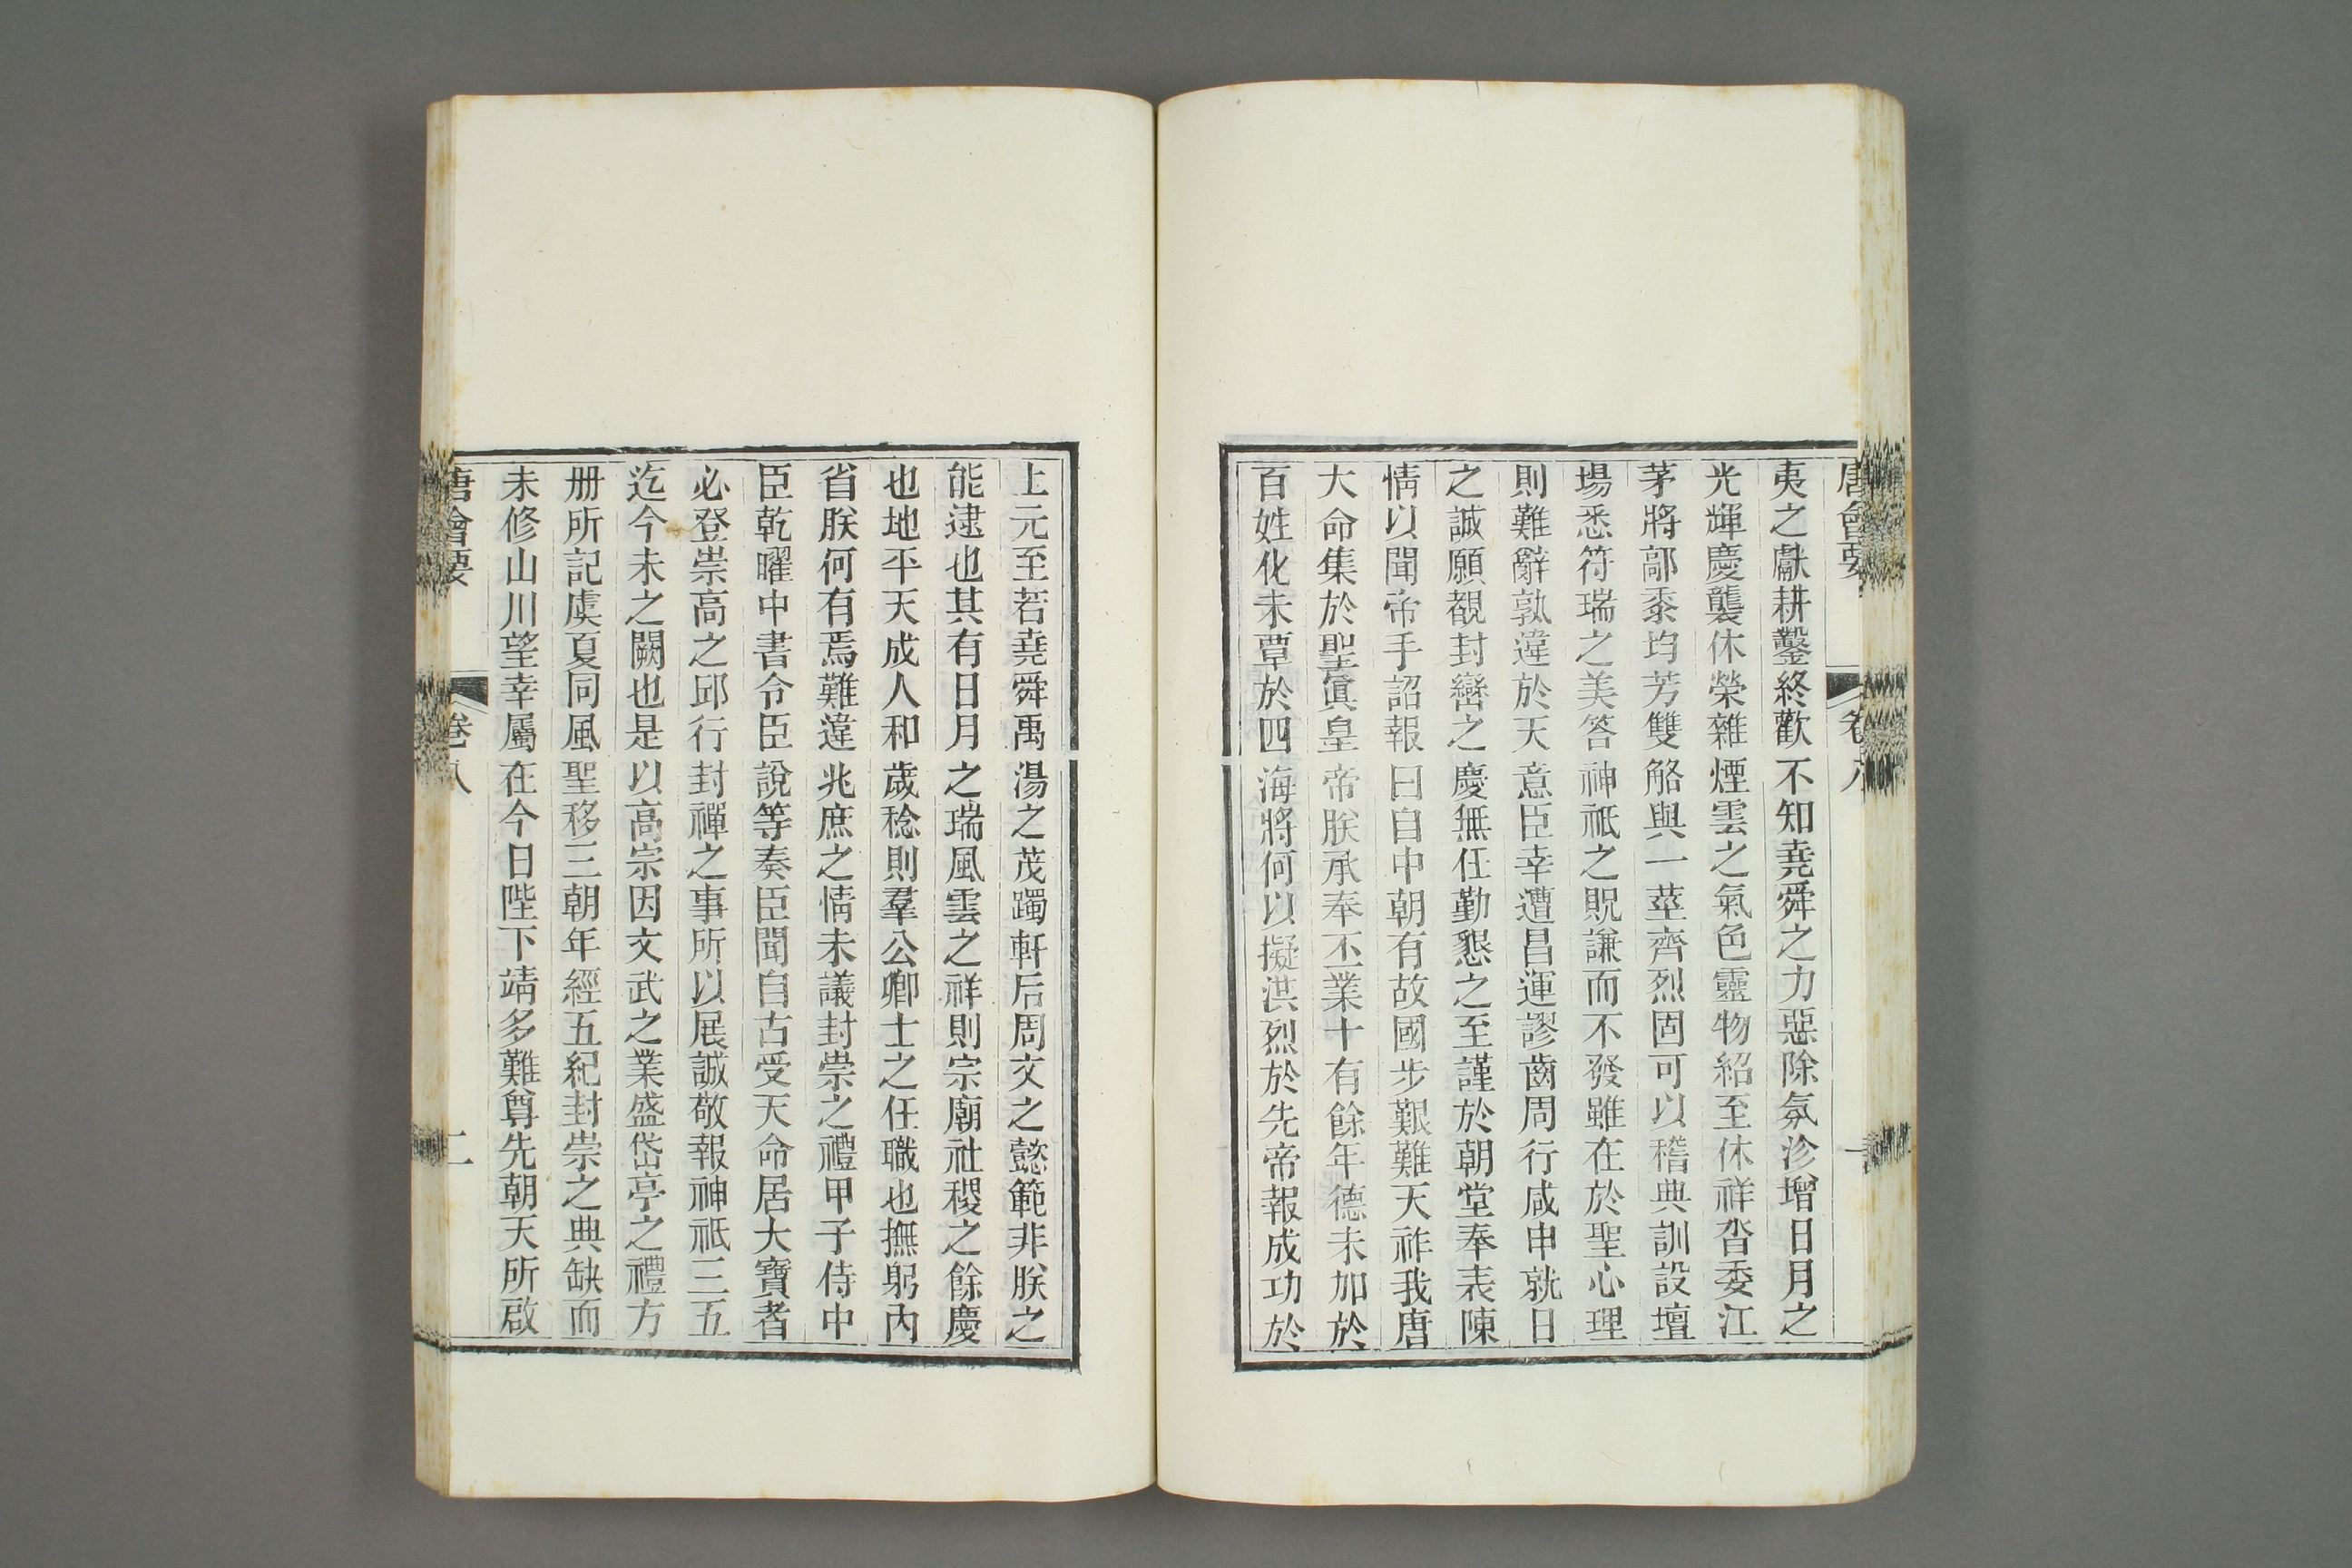 唐會要 卷八 一
夷之獻耕鑿終歡不知堯舜之力惡除氛沴增日月之
光輝慶襲休榮雜煙雲之氣色靈物紹至休祥沓委江
茅將鄗黍均芳雙觡與一莖齊烈固可以稽典訓設壇
場悉符瑞之美答神祇之貺謙而不發雖在於聖心理
則難辭孰違於天意臣幸遭昌運謬齒周行咸申就日
之誠願覩封巒之慶無任勤懇之至謹於朝堂奉表陳
情以聞帝手詔報曰自中朝有故國步艱難天祚我唐
大命集於聖眞皇帝朕承奉丕業十有餘年德未加於
百姓化未覃於四海將何以擬洪烈於先帝報成功於
上元至若堯舜禹湯之茂躅軒后周文之懿範非朕之
能逮也其有日月之瑞風雲之祥則宗廟社稷之餘慶
也地平天成人和歲稔則羣公卿士之任職也撫躬內
省朕何有焉難違兆庶之情未議封崇之禮甲子侍中
臣乾曜中書令臣說等奏臣聞自古受天命居大寶者
必登崇高之邱行封禪之事所以展誠敬報神祇三五
迄今未之闕也是以高宗因文武之業盛岱亭之禮方
册所記虞夏同風聖移三朝年經五紀封崇之典缺而
未修山川望幸屬在今日陛下靖多難尊先朝天所啟
唐會要 卷八 二